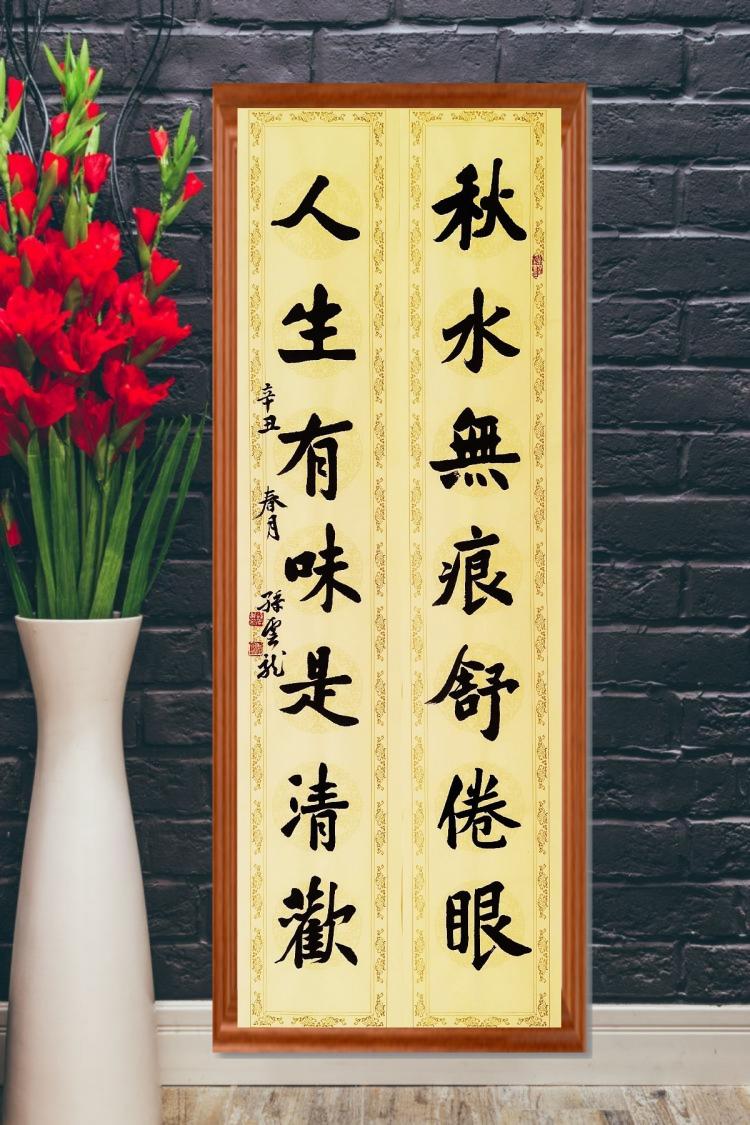 秋水無痕舒倦眼
人生有味是清歡
辛丑 春月 孫雲龍